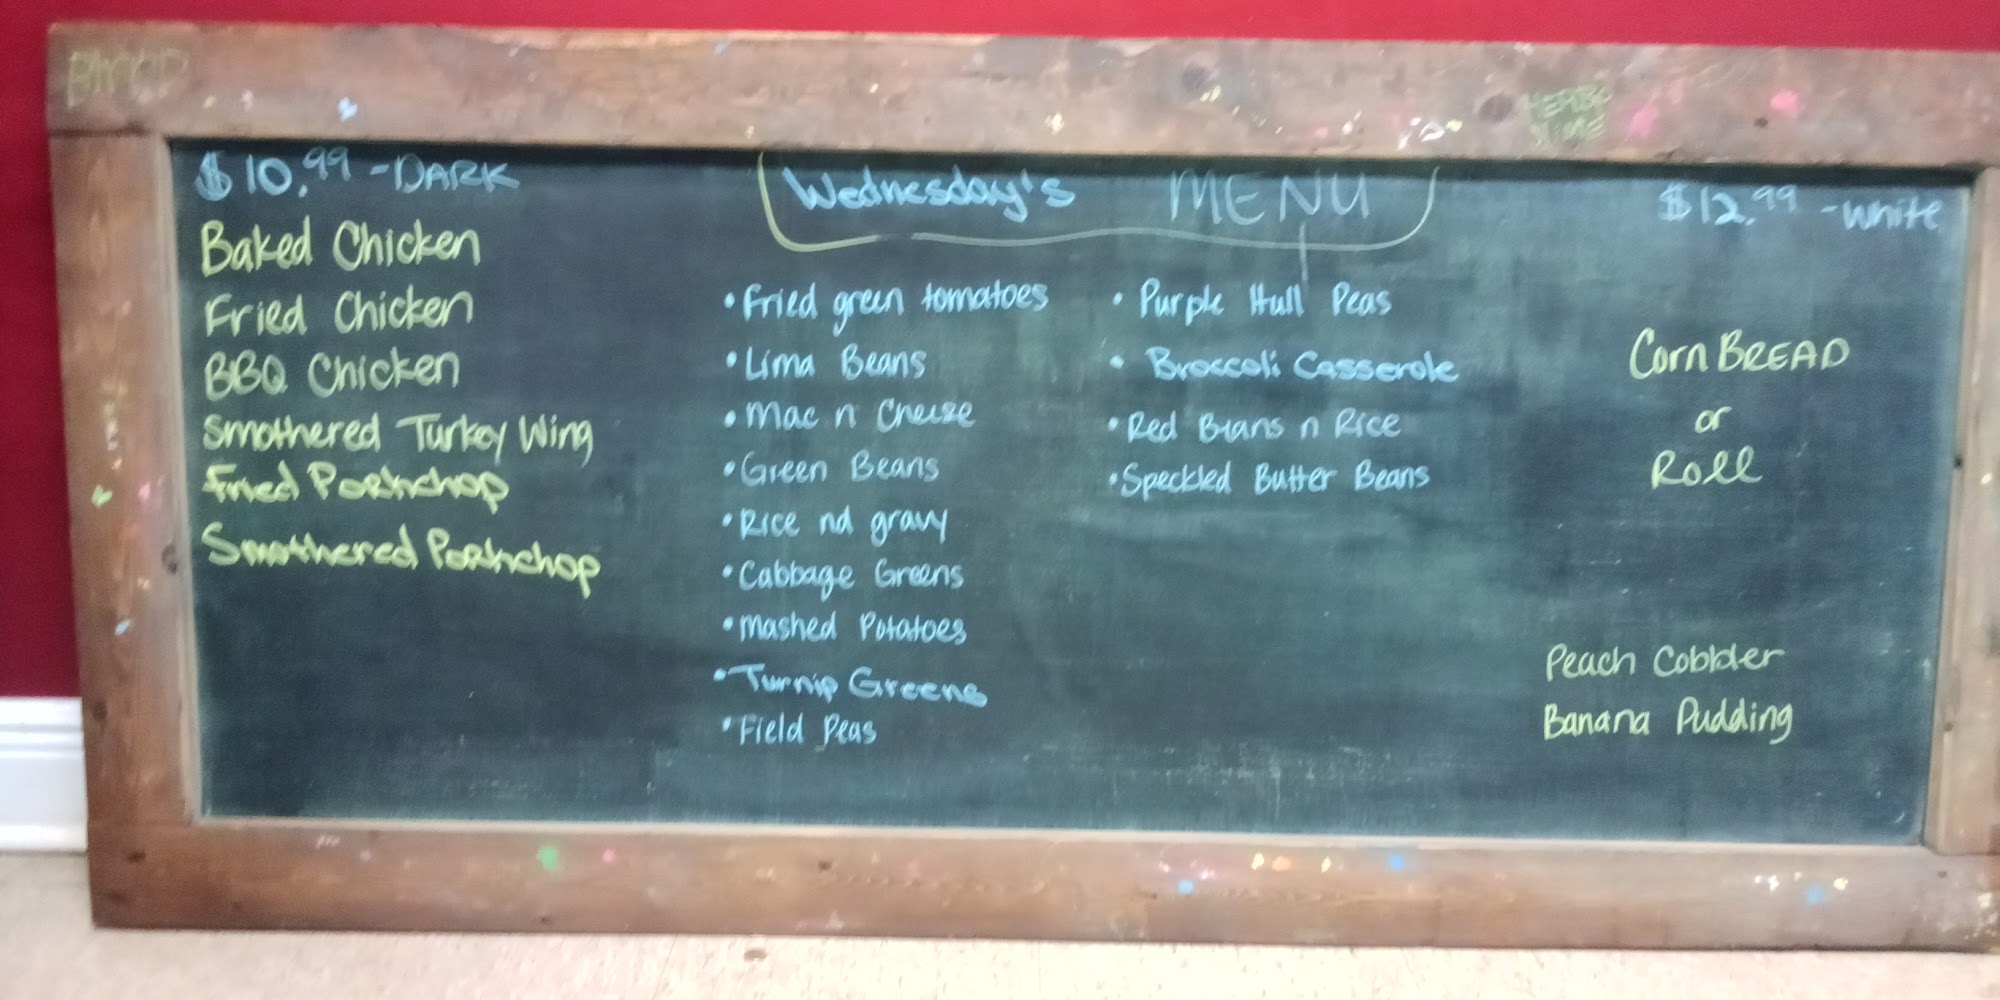 $10.99 - DARK
Wednesday's MENU
$12.99 - white
Baked Chicken
Fried Chicken
BBQ Chicken
Smothered Turkey Wing
Fried Porkchop
Smothered Porkchop
• Fried green tomatoes
• Lima Beans
• Mac n Cheese
• Green Beans
• Rice nd gravy
• Cabbage Greens
• Mashed Potatoes
• Turnip Greens
• Field Peas
• Purple Hull Peas
• Broccoli Casserole
• Red Beans n Rice
• Speckled Butter Beans
Corn BREAD
or
Roll
Peach Cobbler
Banana Pudding